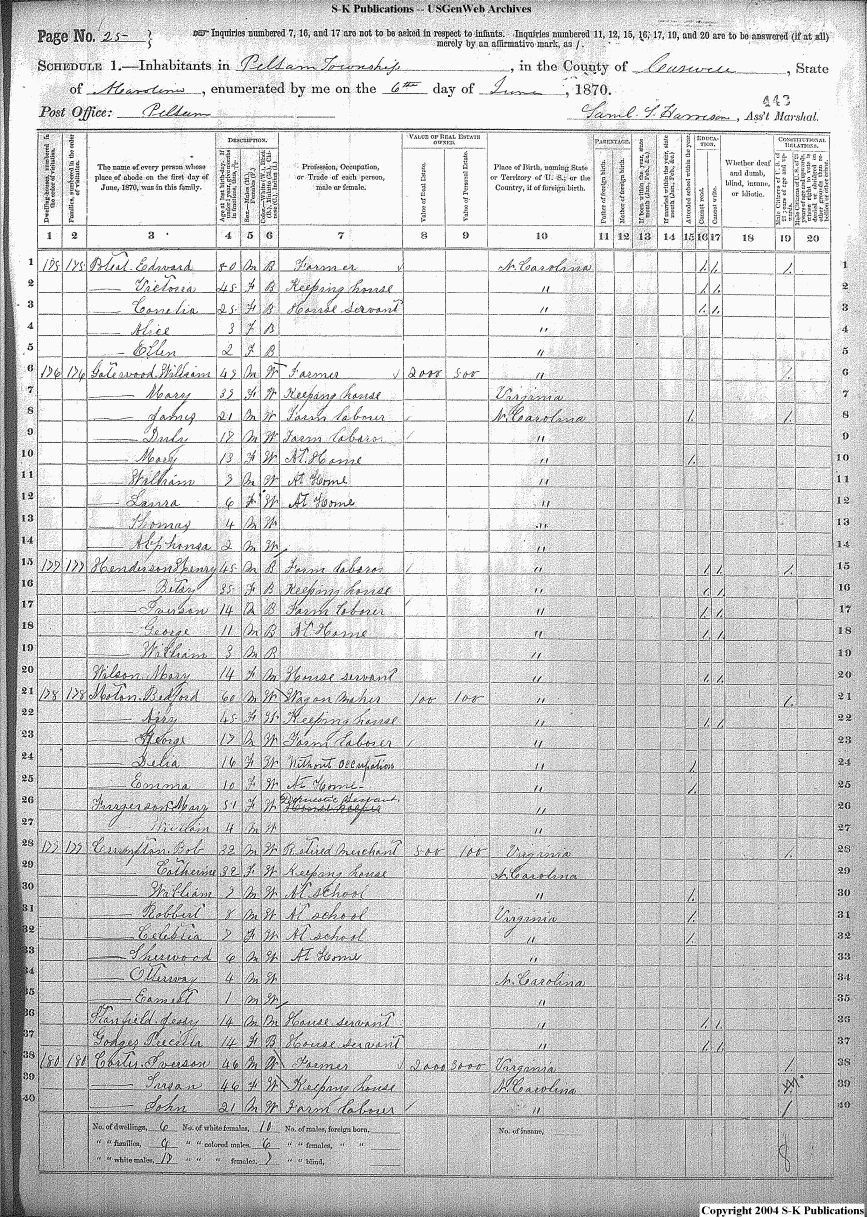 S-K Publications -- USGenWeb Archives
Page No. 25
Inquiries numbered 7, 16, and 17 are not to be asked in respect to infants. Inquiries numbered 11, 12, 15, 16, 17, 19, and 20 are to be answered (if at all)
merely by an affirmative mark, as /.
SCHEDULE 1.—Inhabitants in Pelham Township, in the County of Caswell, State
of N Carolina, enumerated by me on the 6th day of June, 1870.
443
Post Office: Pelham Saml. F. Harrison, Ass't Marshal.
DESCRIPTION. VALUE OF REAL ESTATE OWNED. PARENTAGE. EDUCATION. CONSTITUTIONAL RELATIONS.
Dwelling-houses, numbered in the order of visitation. Families, numbered in the order of visitation. The name of every person whose place of abode on the first day of June, 1870, was in this family. Profession, Occupation, or Trade of each person, male or female. Value of Real Estate. Value of Personal Estate. Place of Birth, naming State or Territory of U. S.; or the Country, if of foreign birth. Father of foreign birth. Mother of foreign birth. Attended school within the year. Cannot read. Cannot write. Whether deaf and dumb, blind, insane, or idiotic.
1 2 3 4 5 6 7 8 9 10 11 12 13 14 15 16 17 18 19 20
1 175 175 Edward M B Farmer N. Carolina / / / 1
2 Victoria 45 F B Keeping house " / / 2
3 Cornelia 25 F B House servant " / / 3
4 Alice 3 F B " 4
5 Ellen 2 F B " 5
6 176 176 Gatewood, William M W Farmer 2000 500 " / 6
7 Mary F W Keeping house Virginia 7
8 James 21 M W Farm laborer N. Carolina / / 8
9 M W Farm laboror " 9
10 Mary 13 F W At Home " / 10
11 William M W At Home " 11
12 Laura 6 F W At Home " 12
13 Thomas 4 M W " 13
14 Alphonsa 2 M W " 14
15 177 177 Henderson Henry 45 M B Farm laboror " / / / 15
16 Betsy 35 F B Keeping house " / / 16
17 Iverson 14 M B Farm laborer " / / 17
18 George 11 M B At Home " / / 18
19 William 3 M B " 19
20 Wilson Mary 14 F M House servant " / / 20
21 178 178 Moton Bedford 60 M W Wagon Maker 100 100 " / 21
22 45 F W Keeping house " / / 22
23 George 17 M W Farm laborer " 23
24 Delia 16 F W Without occupation " / 24
25 Emma 10 F W At Home " / 25
26 Mary 51 F W Domestic Servant " 26
27 William 4 M W " 27
28 179 179 Crumpton Bob 32 M W Retired Merchant 500 100 Virginia / 28
29 Catherine 32 F W Keeping house N. Carolina 29
30 William M W At school " / 30
31 Robbert 8 M W At school Virginia / 31
32 Celestia 7 F W At school " / 32
33 Sherwood 6 M W At Home " 33
34 Otterway 4 M W N. Carolina 34
35 Earnest 1 M W " 35
36 Stanfield Jessy 14 M M House servant " / / 36
37 14 F B House servant " / / 37
38 180 180 Carter Iverson 46 M W Farmer 2000 3000 Virginia / 38
39 Susan 46 F W Keeping house N. Carolina 39
40 John 21 M W Farm laborer " / 40
No. of dwellings, 6 No. of white females, 10 No. of males, foreign born, No. of insane,
" " families, " " colored males, 6 " " females, " "
" " white males, 17 " " " females, 7 " " blind, 8
Copyright 2004 S-K Publications